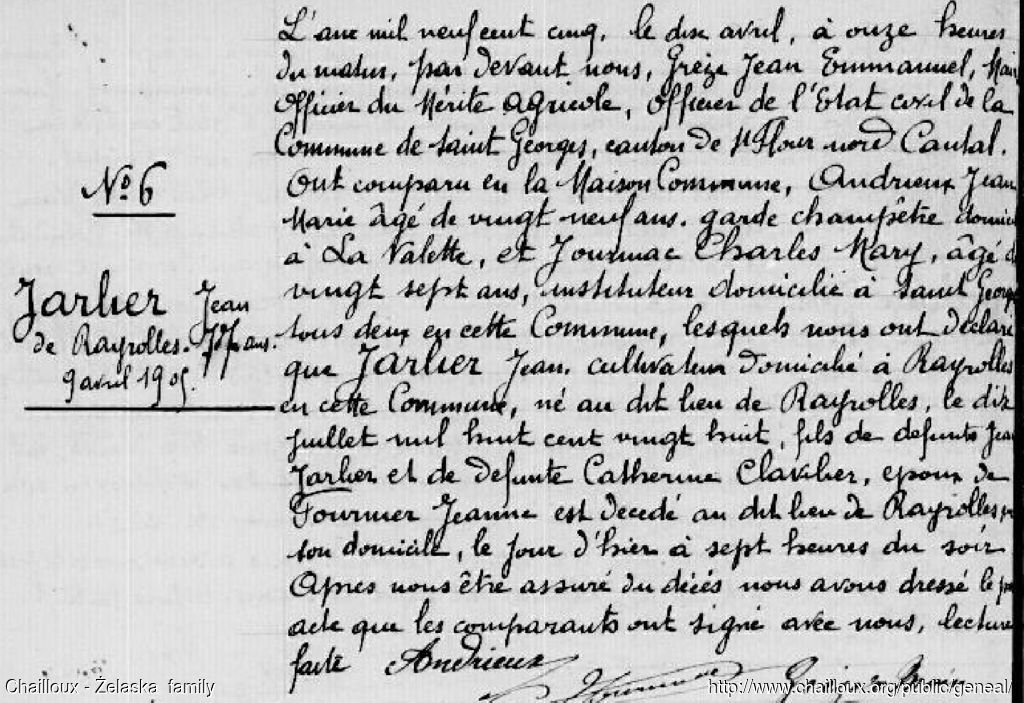 N° 6
Jarlier Jean
de Rayrolles.
9 avril 1905.
L'an mil neuf cent cinq, le dix avril, à onze heures
du matin, par devant nous, Grèze Jean Emmanuel, Mair
Officier du Mérite Agricole, Officier de l'Etat civil de la
Commune de Saint Georges, canton de St Flour nord Cantal.
Ont comparu en la Maison Commune, Andrieux Jean
Marie âgé de vingt neuf ans. garde champêtre domici
à La Valette, et Journiac Charles Mary, âgé d
vingt sept ans, instituteur domicilié à Saint Georges
tous deux en cette Commune, lesquels nous ont déclaré
que Jarlier Jean. cultivateur domicilié à Rayrolles
en cette Commune, né au dit lieu de Rayrolles, le dix
juillet mil huit cent vingt huit, fils de defunts Jean
Jarlier et de defunte Catherine Clavilier, epoux de
Fournier Jeanne est decedé au dit lieu de Rayrolles,
son domicile, le jour d'hier à sept heures du soir
Apres nous être assuré du décès nous avons dressé le p
acte que les comparants ont signé avec nous, lecture
faite Andrieux
Chailloux - Żelaska family
http://www.chailloux.org/public/geneal/